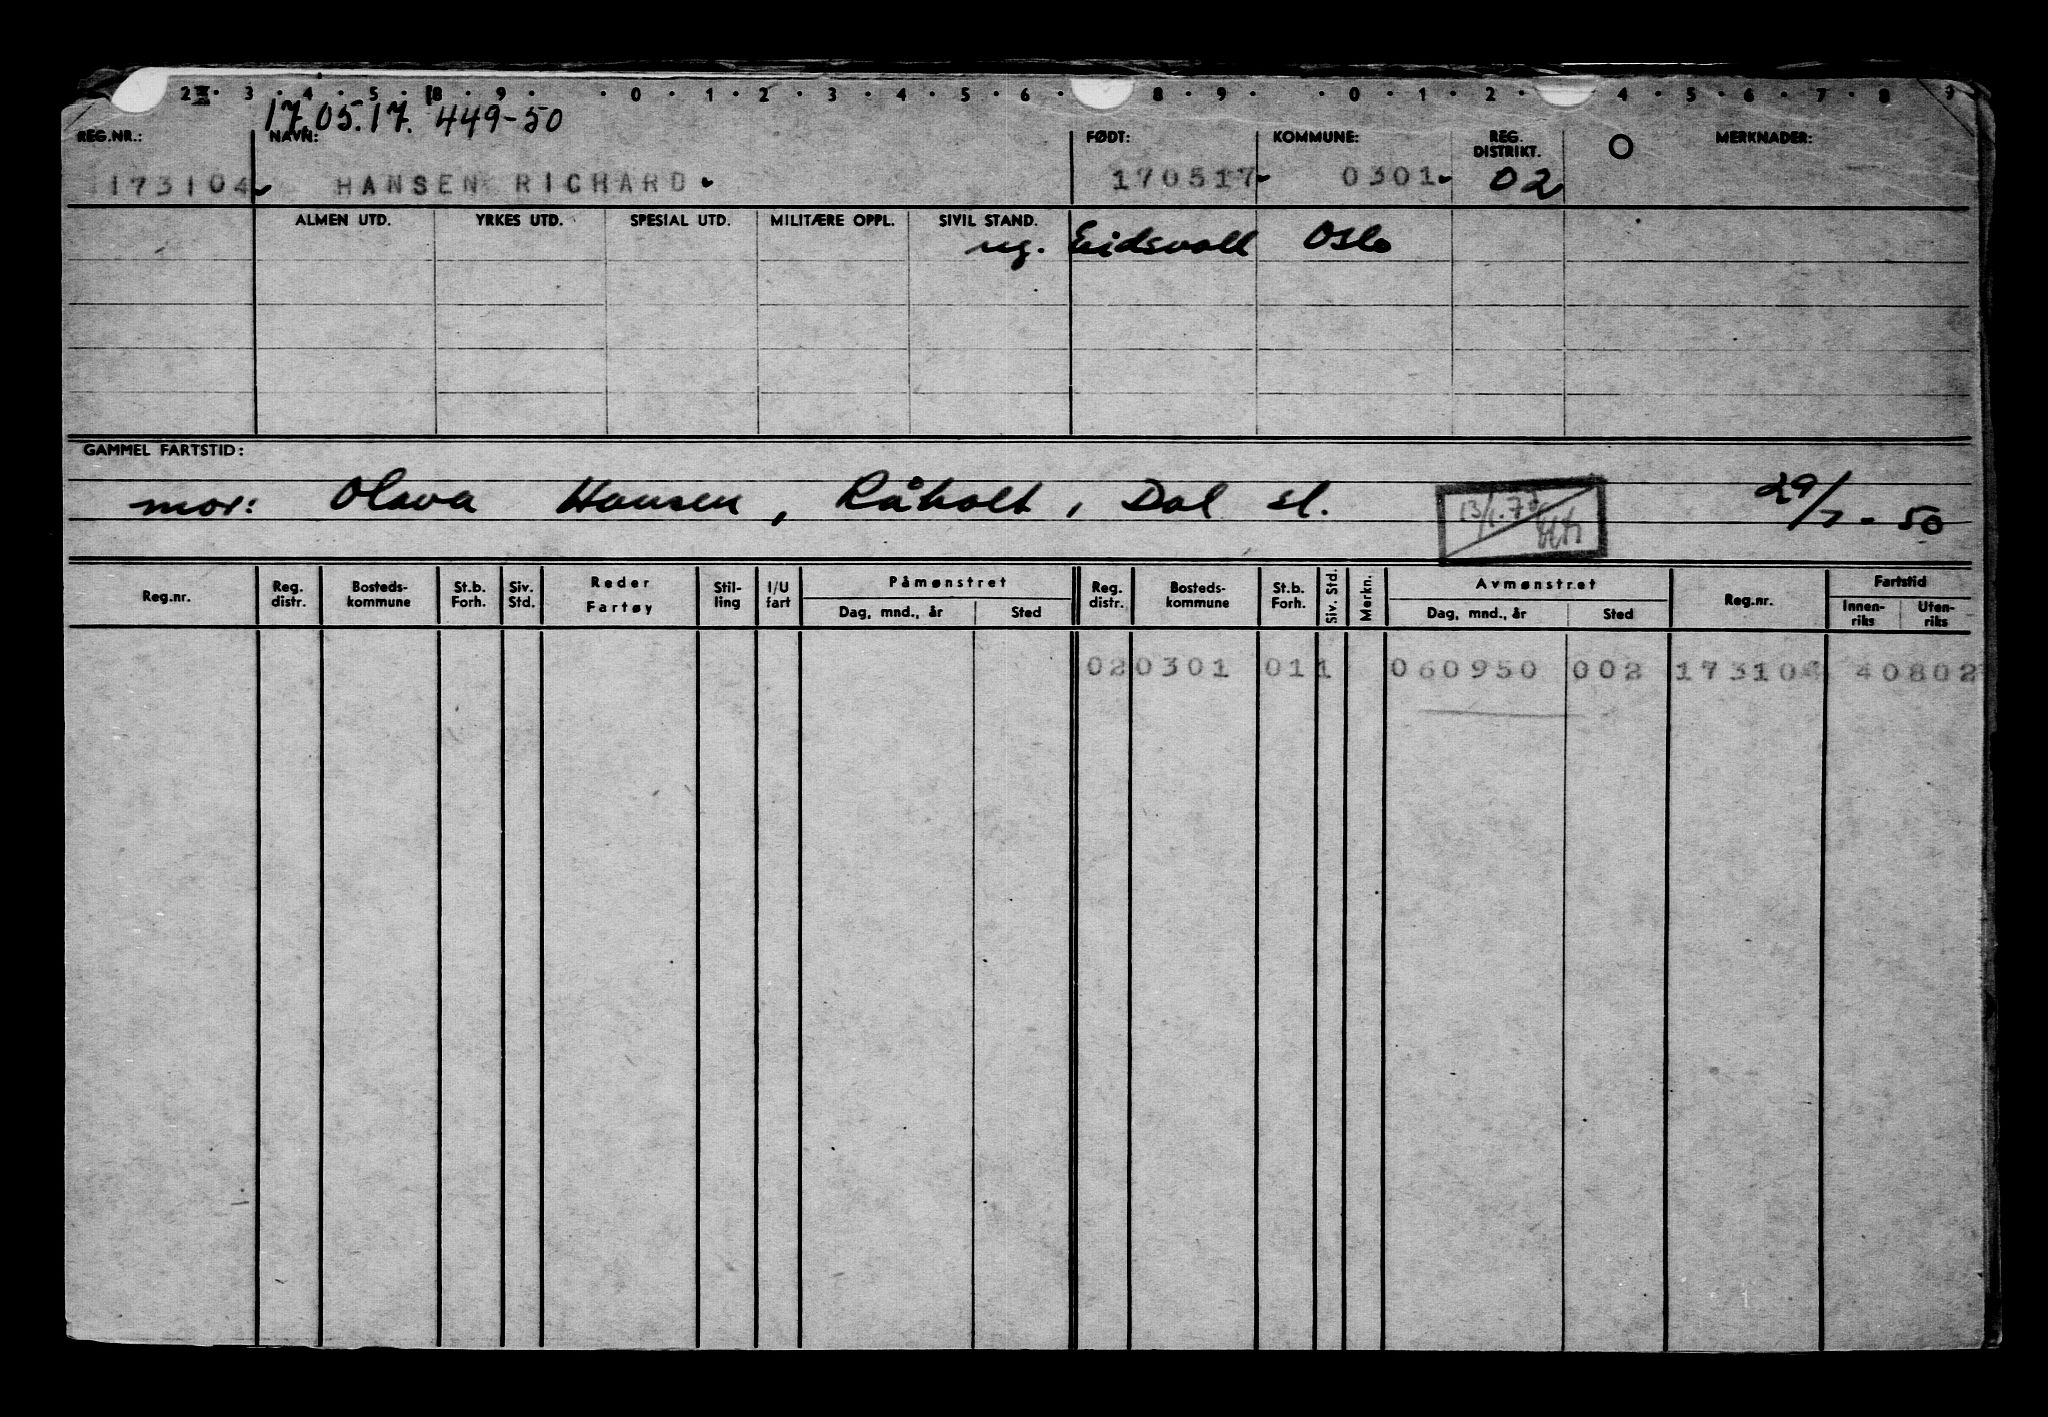 2 · 3 · 4 · 5 · 8 · 9 · · 0 · 1 · 2 · 3 · 4 · 5 · 6 · 8 · 9 · · 0 · 1 · 2 · 4 · 5 · 6 · 7 · 8 · 9
17.05.17. 449-50
REG.NR.: NAVN: FØDT: KOMMUNE: REG. DISTRIKT. MERKNADER:
173104 HANSEN RICHARD 170517 0301 02
ALMEN UTD. YRKES UTD. SPESIAL UTD. MILITÆRE OPPL. SIVIL STAND.
ug. Eidsvoll Oslo
GAMMEL FARTSTID:
mor: Olava Hansen, Råholt, Dal st. 29/7-50
Reg.nr. Reg. distr. Bosteds-kommune St.b. Forh. Siv. Std. Reder Fartøy Stil-ling I/U fart Påmønstret Dag, mnd., år Sted Reg. distr. Bosteds-kommune St.b. Forh. Siv. Std. Merkn. Avmønstret Dag, mnd., år Sted Reg.nr. Fartstid Innen-riks Uten-riks
02 0301 01 1 060950 002 173104 40802